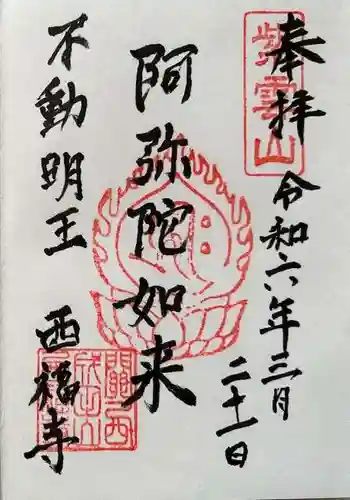 奉拝
紫雲山
令和六年三月
二十一日
阿弥陀如来
不動明王
西福寺